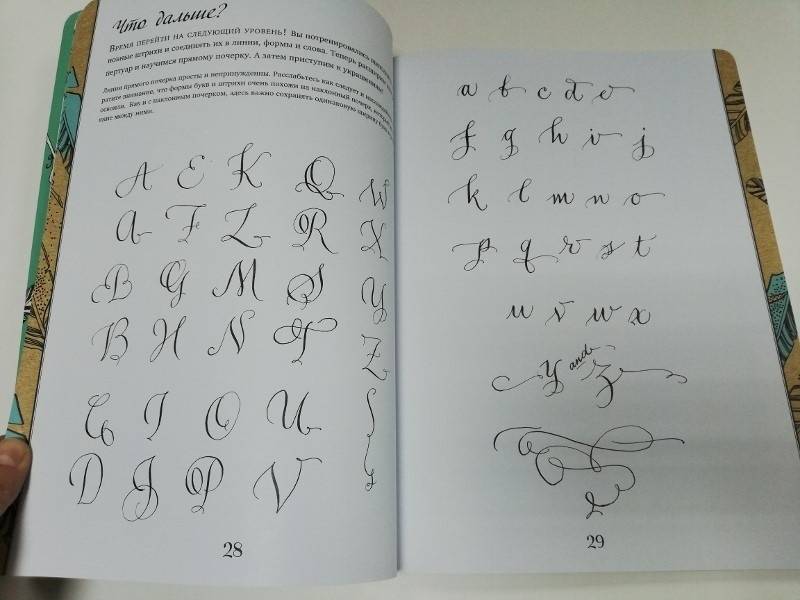 Что дальше?
Время перейти на следующий уровень! Вы потренировались
новые штрихи и соединять их в линии, формы и слова. Теперь
пертуар и научимся прямому почерку. А затем приступим к украшениям!
Линии прямого почерка просты и непринужденны. Расслабьтесь как следует и
ратите внимание, что формы букв и штрихи очень похожи на наклонный почерк,
освоили. Как и с наклонным почерком, здесь важно сохранять одинаковую ширину букв
ние между ними.
A E K Q W
A F L R X
B G M S Y
B H N T Z
C I O U
D J P V
28
a b c d e
f g h i j
k l m n o
p q r s t
u v w x
y and z
29